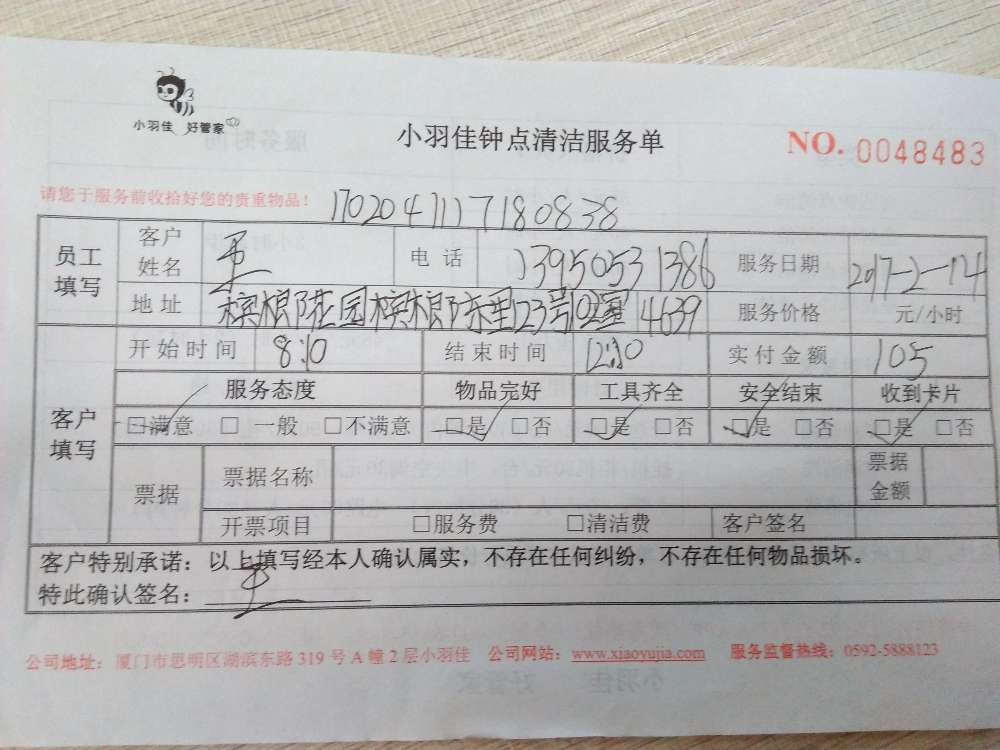 小羽佳 好管家
小羽佳钟点清洁服务单
NO. 0048483
请您于服务前收拾好您的贵重物品！ 1702047117180838
员工填写 客户姓名 王 电话 13950531386 服务日期 2017-2-14
地址 槟榔花园槟榔东里123号102室 4639 服务价格 元/小时
客户填写 开始时间 8:10 结束时间 12:10 实付金额 105
服务态度 物品完好 工具齐全 安全结束 收到卡片
□满意 □一般 □不满意 □是 □否 □是 □否 □是 □否 □是 □否
票据 票据名称 票据金额
开票项目 □服务费 □清洁费 客户签名
客户特别承诺：以上填写经本人确认属实，不存在任何纠纷，不存在任何物品损坏。
特此确认签名： 王
公司地址：厦门市思明区湖滨东路 319 号 A 幢 2 层小羽佳 公司网站：www.xiaoyujia.com 服务监督热线：0592-5888123